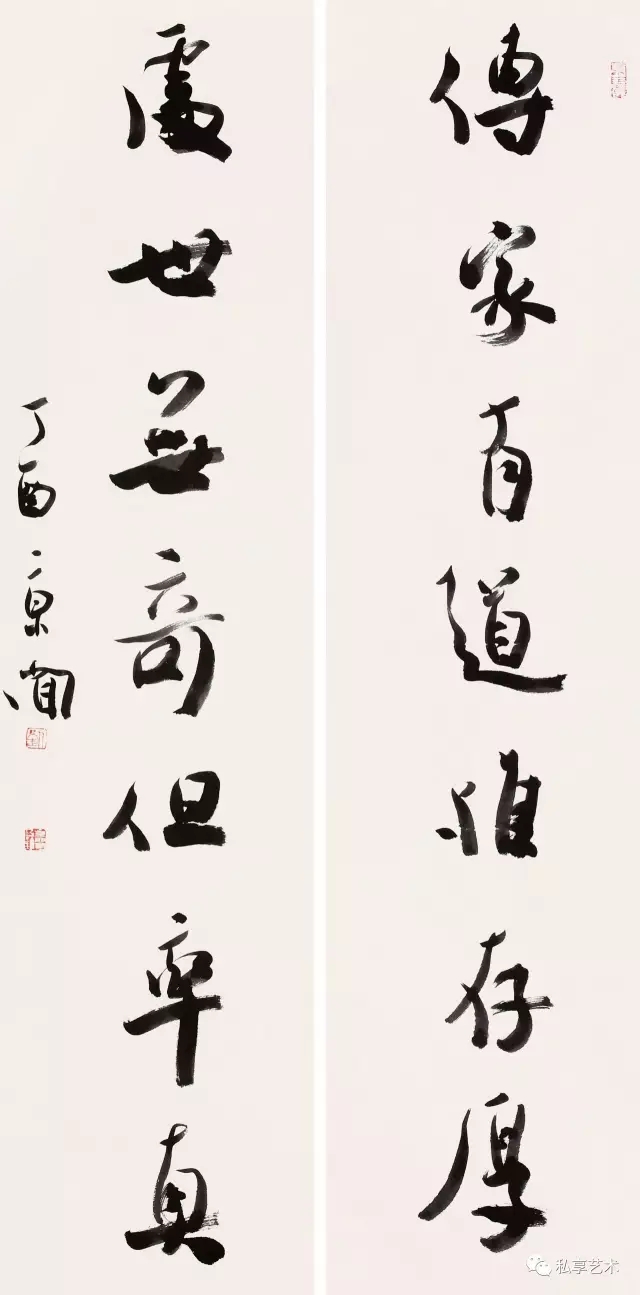 傳家有道惟存厚
處世無奇但率真
丁酉 京閒
私享艺术